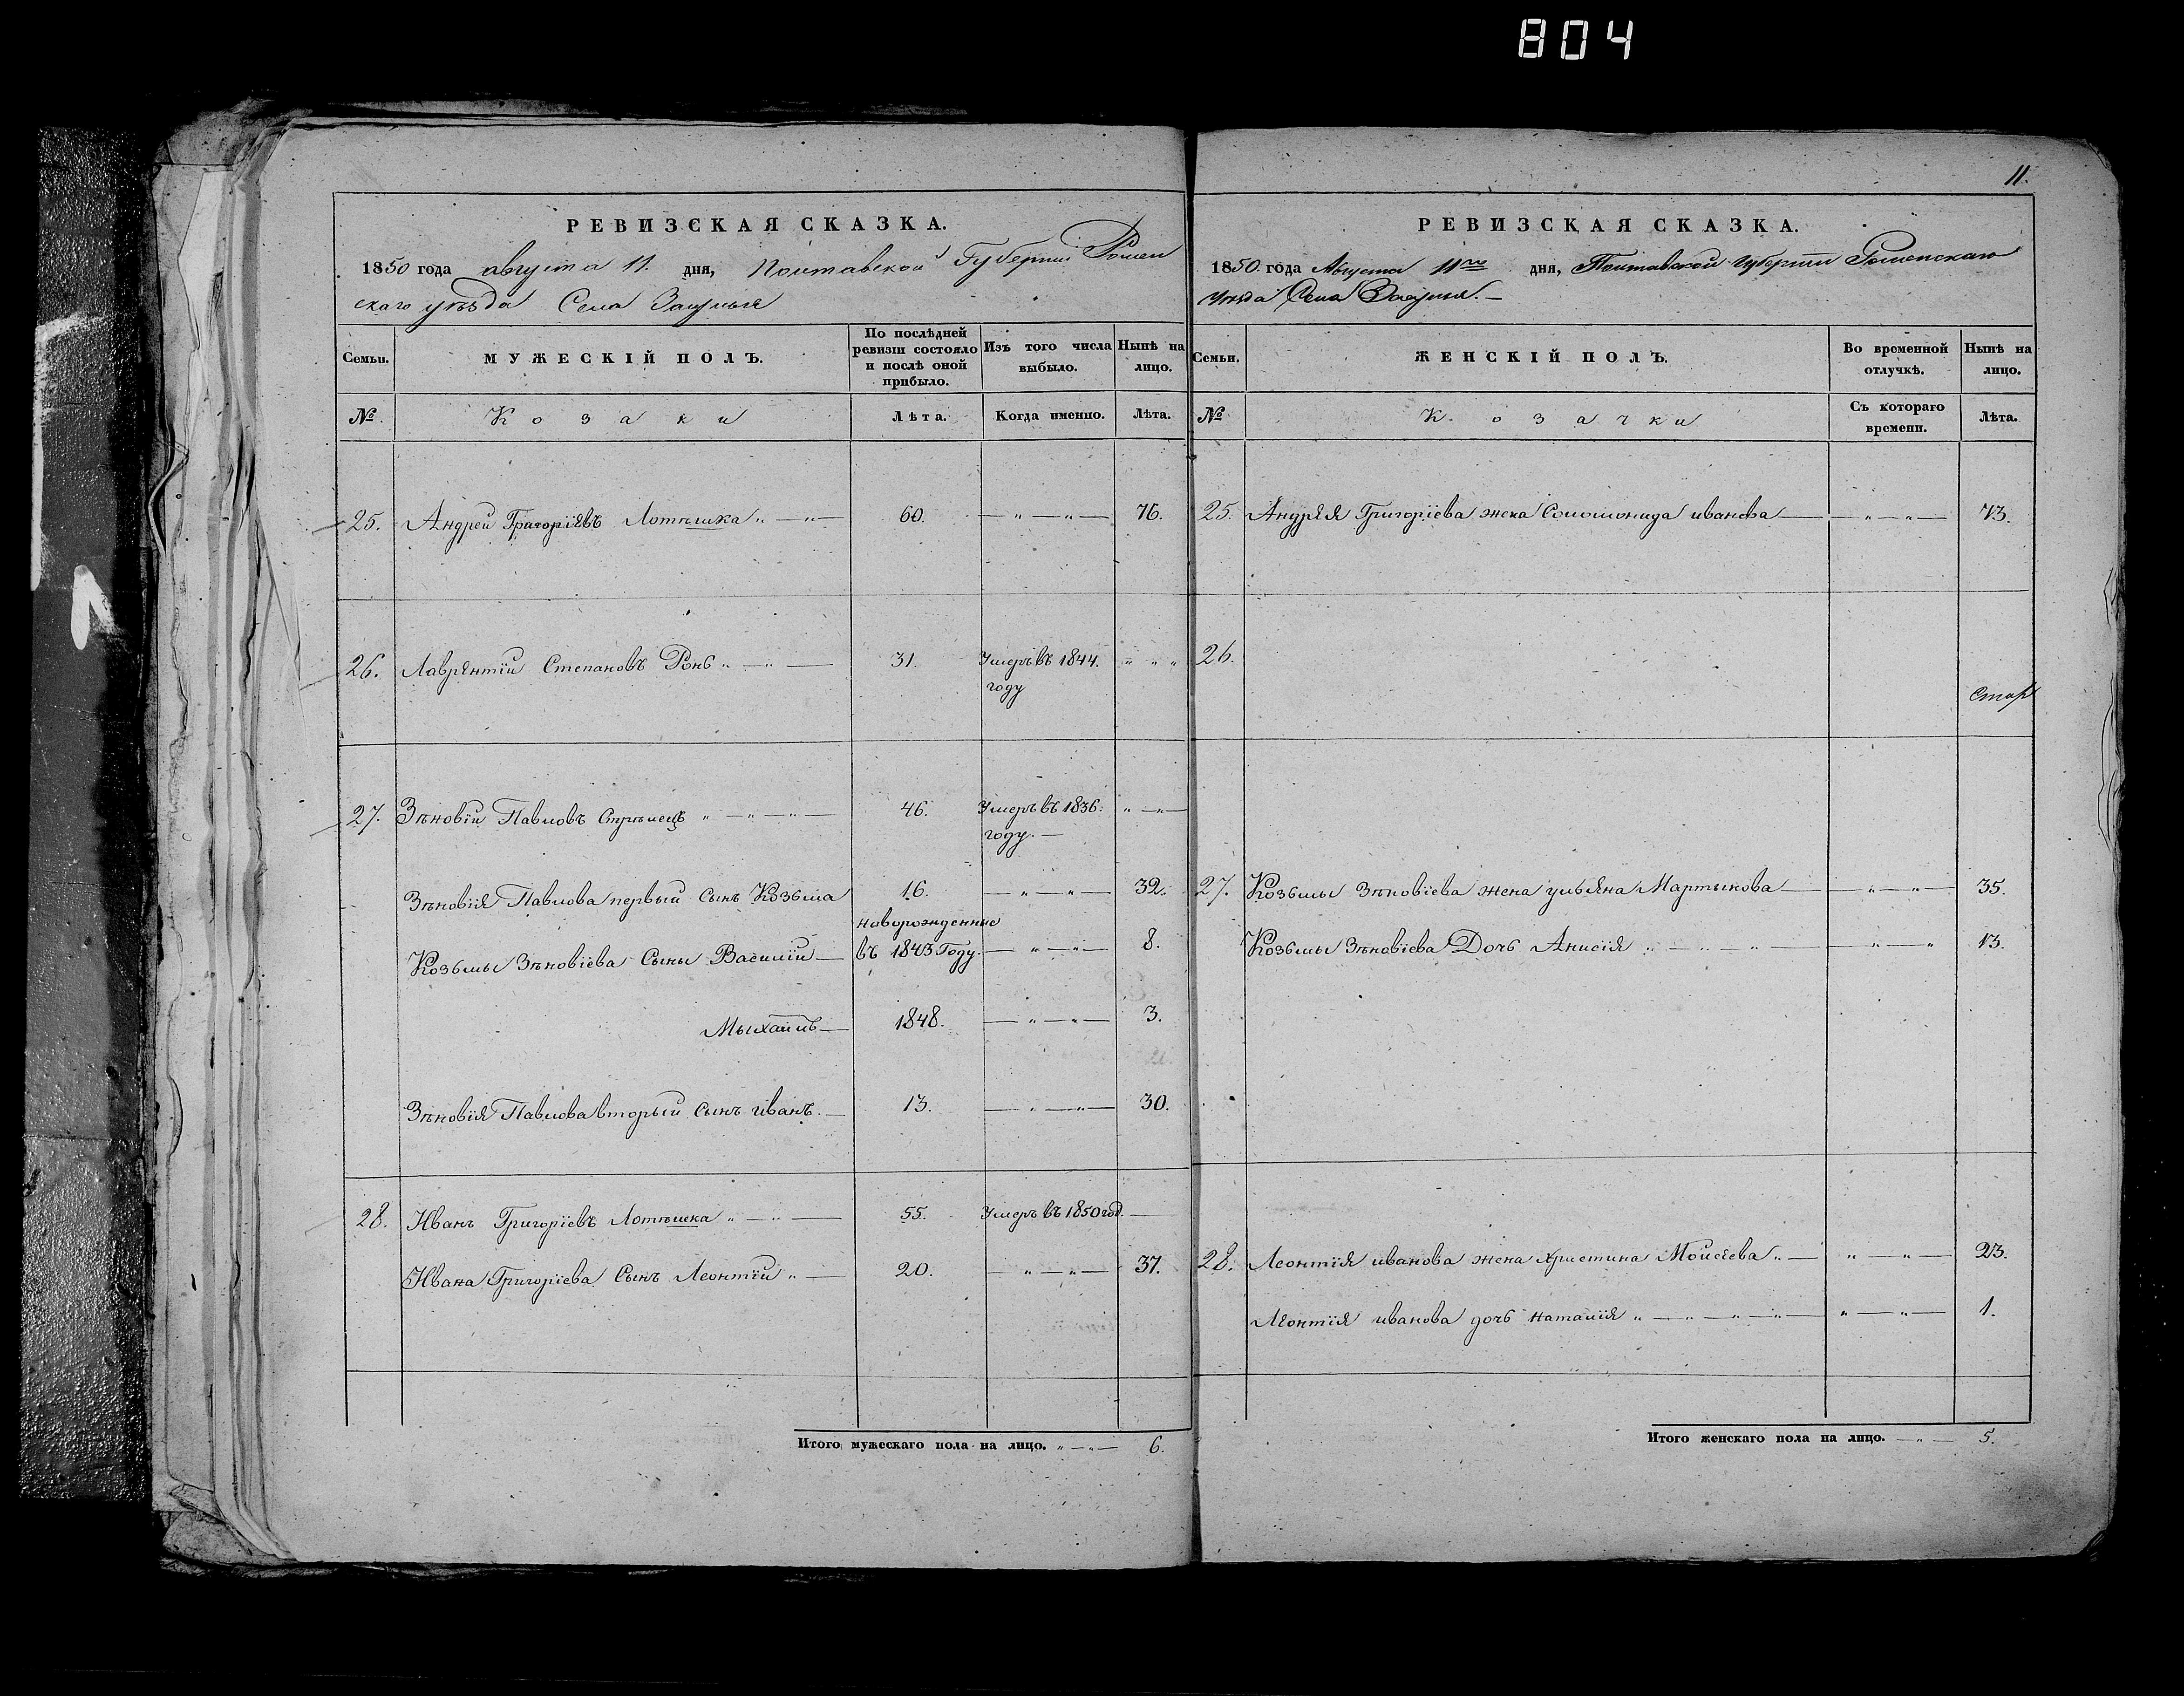 804
11.
РЕВИЗСКАЯ СКАЗКА.
1850 года августа 11. дня, Полтавской Губернии Ромен
скаго уѣзда Села
По послѣдней ревизіи состояло и послѣ оной прибыло.
Изъ того числа выбыло.
Нынѣ на лицо.
Семьи. МУЖЕСКІЙ ПОЛЪ.
№. Козаки Лѣта. Когда именно. Лѣта.
25. Андрей Григорієвъ Лотышка „ — „ — 60. — „ — „ — 76.
26. Лаврентій Степановъ Ронь „ — „ — 31. Умеръ въ 1844. „ „ „
году
27. Зѣновій Павловъ Стрѣлецъ „ — „ — „ — 46. Умеръ въ 1836. „ — „ —
году. —
Зѣновія Павлова первый Сынъ Козьма 16. — „ — „ — 32.
Новорожденные
Козьмы Зѣновіева Сыны Василій — въ 1843 Году. — „ — „ — 8.
Мыхаилъ — 1848. — „ — „ — 3.
Зѣновія Павлова вторый Сынъ иванъ. — 13. — „ — „ — 30.
28. Иванъ Григоріевъ Лотышка „ — „ — 55. Умеръ въ 1850 год. —
Ивана Григоріева Сынъ Леонтій „ — 20. — „ — „ — 37.
Итого мужескаго пола на лицо. „ — „ — 6.
РЕВИЗСКАЯ СКАЗКА.
1850. года Августа 11го дня, Полтавской Губерніи Роменскаго
Уѣзда Села
Семьи. ЖЕНСКІЙ ПОЛЪ. Во временной отлучкѣ. Нынѣ на лицо.
№ Козачки Съ котораго времени. Лѣта.
25. Андрея Григоріева жена Соломонида иванова — — „ — „ — 73.
26.
27. Козьмы Зѣновіева жена ульяна Мартынова — — „ — „ — 35.
Козьмы Зѣновіева Дочь Анисія „ — „ — „ — — „ — „ 13.
28. Леонтія иванова жена Христина Моисеева „ — „ — „ — 23.
Леонтія иванова дочь наталія „ — „ — „ — „ — „ — „ — 1.
Итого женскаго пола на лицо. — „ — 5.